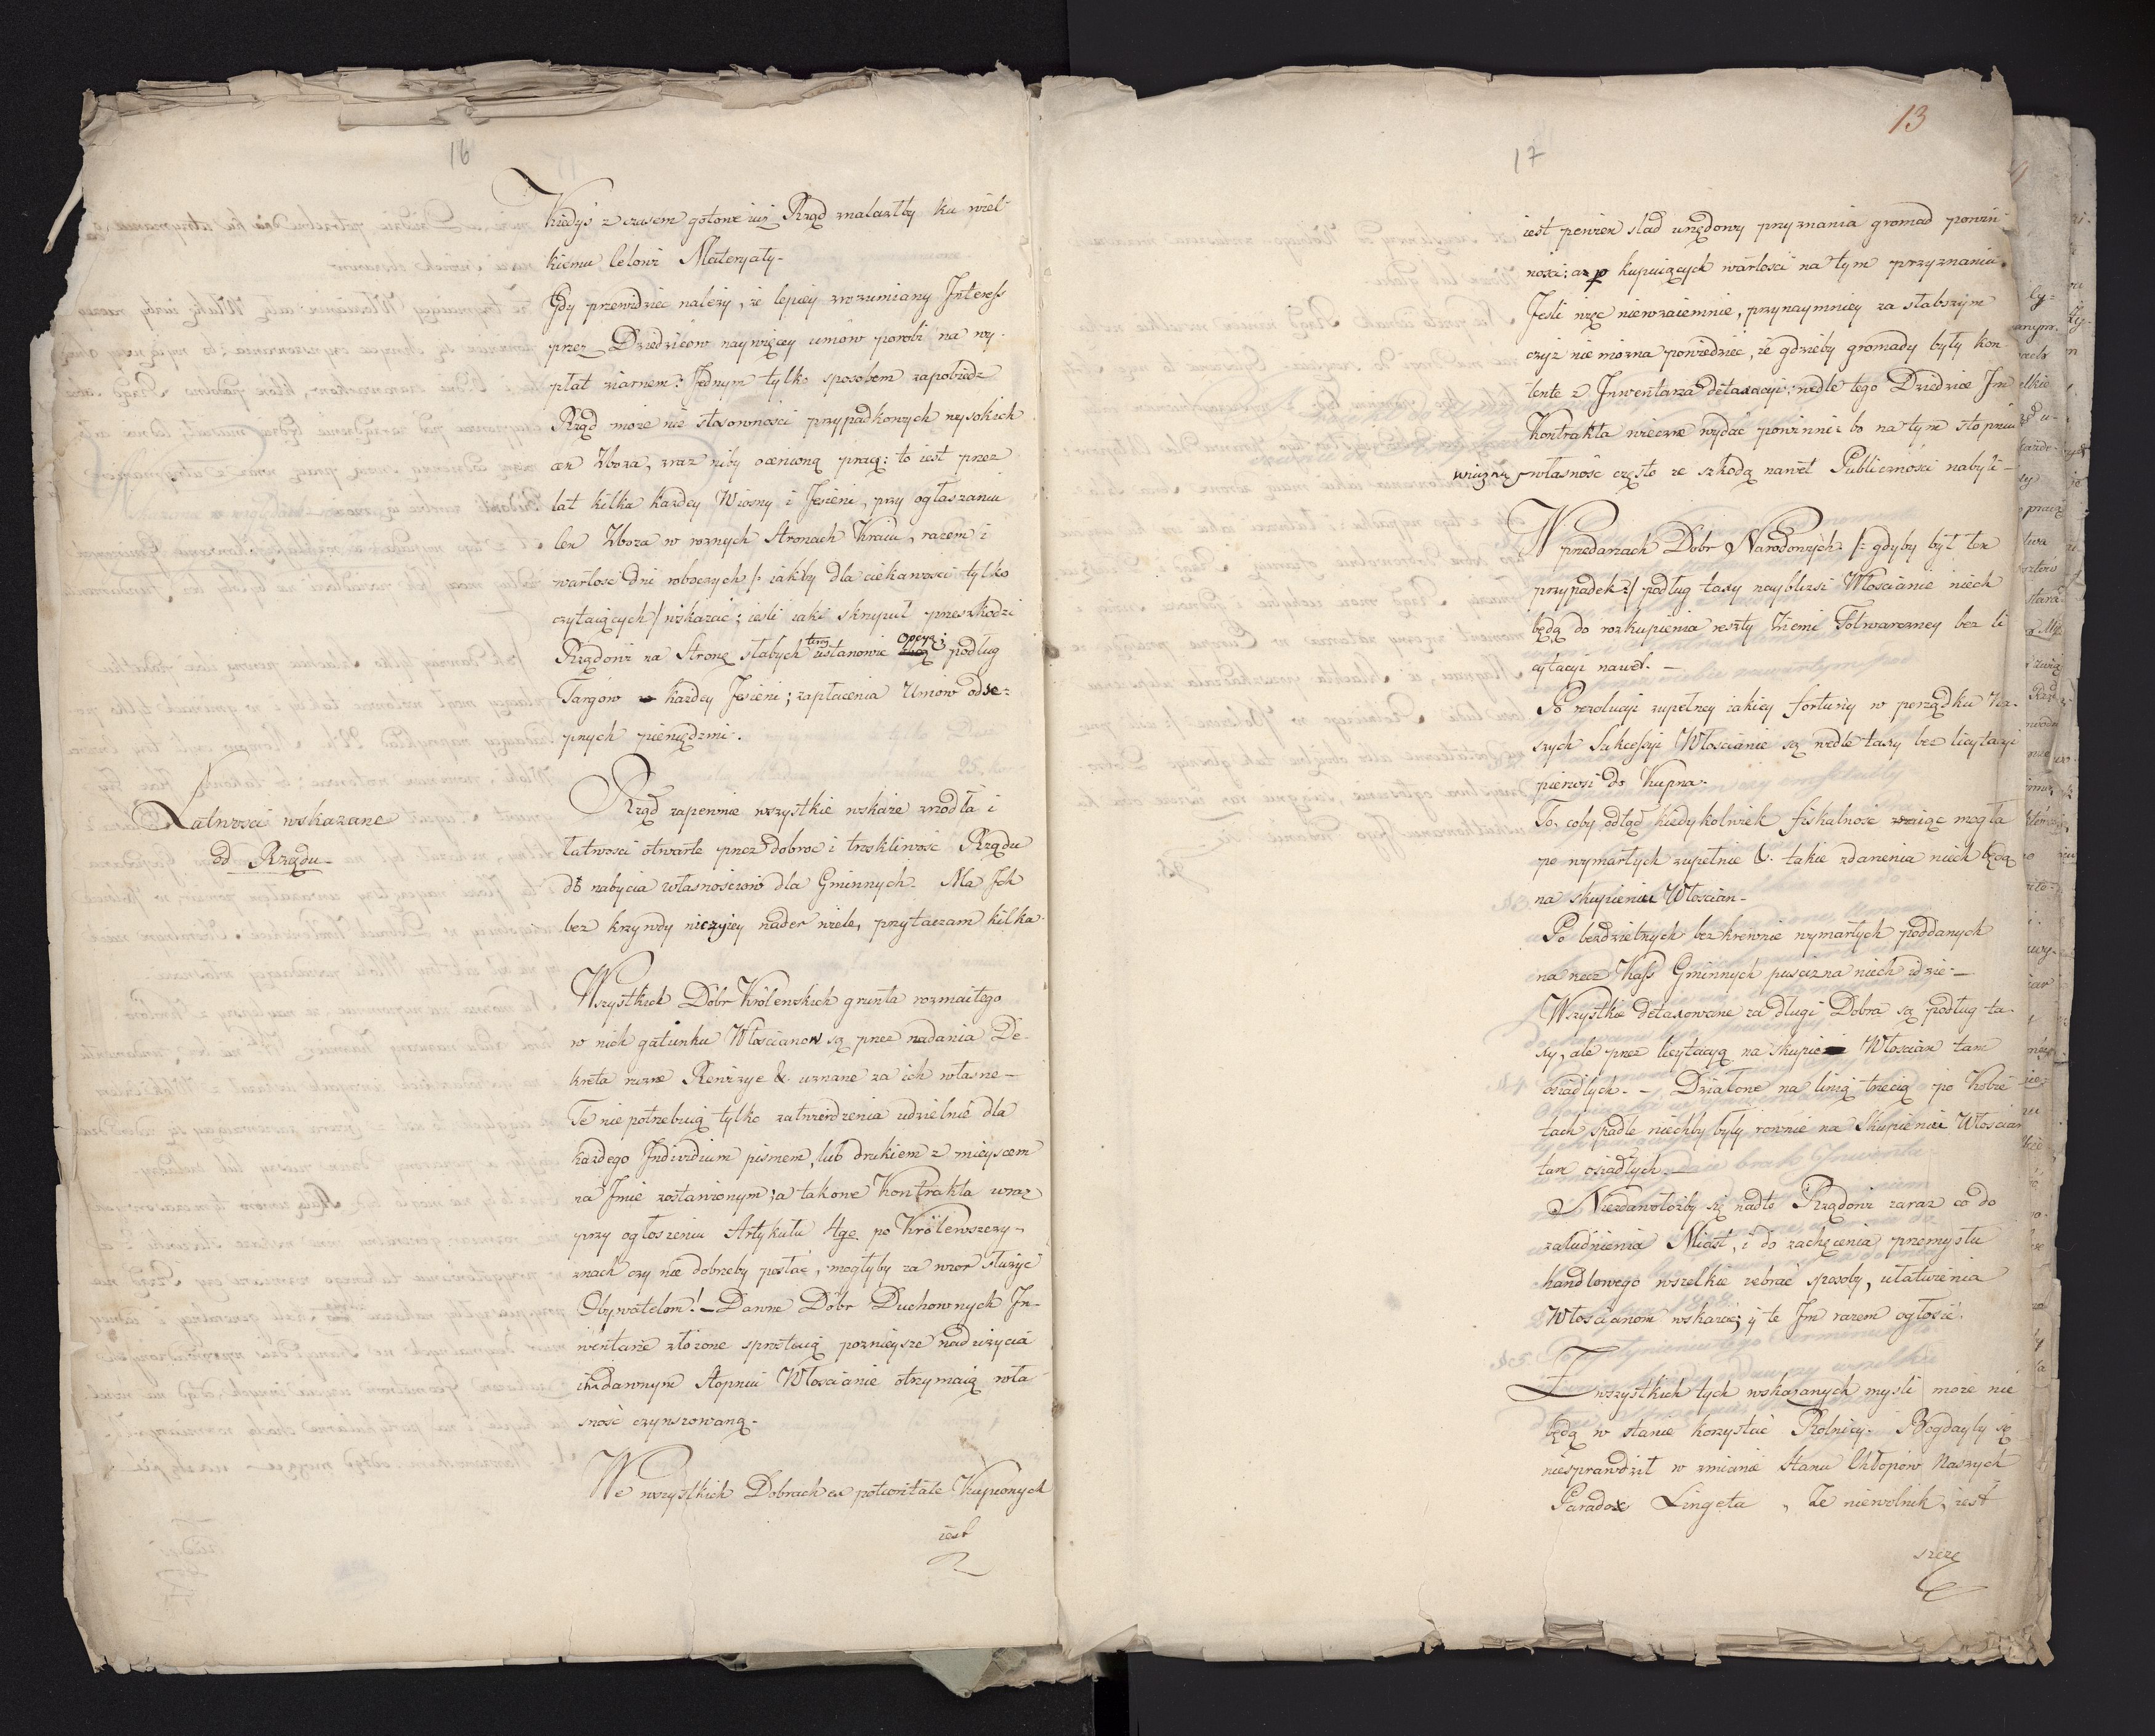 16
Kiedyś z czasem gotowe iuż Rząd znalazłby ku wiel-
kiemu Celowi Materyały.
Gdy przewidzieć należy, że lepiey zrozumiany Interess
przez Dziedziców naywięcey umów porobi na wy-
płat ziarnem: Jednym tylko sposobem zapobiedz
Rząd może nie stosowności przypadkowych wysokich
cen Zboża, zraz niby ocenioną pracą: to iest przez
lat kilka każdey Wiosny i Jesieni, przy ogłaszaniu
Cen Zboża w roznych Stronach Kraiu, razem i
wartość dni roboczych /: iakby dla ciekawości tylko
czytaiących / wskazać; ieśli iaki skrypuł przeszkodzi
Rządowi za Stronę słabych teraz ustanowić opcyą; podług
Targów każdey Jesieni; zapłacenia Umów odse-
pnych pieniędzmi.
Łatwości wskazane
od Rządu
Rząd zapewnie wszystkie wskaże zrzodła i
łatwości otwarte przez dobroć i troskliwość Rządu
do nabycia własnościów dla Gminnych. Ma Ich
bez krzywdy niczyiey nader wiele, przytaczam kilka.
Wszystkich Dóbr Królewskich grunta rozmaitego
w nich gatunku Włościanow są przez nadania De-
kreta rużne Rewizye &. uznane za ich własne —
Te nie potrzebuią tylko zatwierdzenia udzielnie dla
każdego Individium pismem, lub drukiem z mieyscem
na Imie zostawionym; a takowe Kontrakta wraz
przy ogłoszeniu Artykułu 4go po Królewszczy-
znach czy nie dobrzeby posłać, mogłyby za wzor służyć
Obywatelom! — Dawne Dóbr Duchownych In-
wentarze złożone sprostuią poznieysze nadużycia
i w dawnym Stopniu Włoscianie otrzymaią wła-
sność czynszowaną.
We wszystkich Dobrach ex potioritate Kupionych
iest
13
17
iest pewien slad urzędowy przyznania gromad powin-
ności; a kupuiących wartości na tym przyznaniu.
Jeśli więc niewzaiemnie, przynaymniey za słabszym
czyż nie można powiedzieć, że gdzieby gromady były kon-
tente z Inwentarza detaxacyi: wedle tego Dziedzice Im
Kontrakta wieczne wydać powinni: bo na tym stopniu
własność często ze szkodą nawet Publiczności nabyli —
W przedażach Dobr Narodowych /: gdyby był ten
przypadek :/ podług taxy naybliżsi Włościanie niech
będą do rozkupienia reszty Ziemi Folwarczney bez li-
cytacyi nawet. —
Po rezolucyi zupełney iakiey fortuny w porządku Na-
szych Sukcessyi Włoscianie są wedle taxy bez licytacyi
pierwsi do Kupna.
To, coby odtąd kiedykolwiek fiskalność wziąć mogła
po wymarłych zupełnie &. takie zdarzenia niech będą
na skupieniu Włoscian.
Po bezdzietnych bezkrewnie wymarłych poddanych
na rzecz Kass Gminnych puscizna niech idzie. —
Wszystkie detaxowane za długi Dobra są podług ta-
xy, ale przez licytacyą na skupie Włoscian tam
osiadłych. — Działowe na linią trzecią po Kobie-
tach spadłe niechby były rownie na Skupieniu Włoscian
tam osiadłych —
Niezdawałoby się nadto Rządowi zaraz co do
zaludnienia Miast, i do zachęcenia przemysłu
handlowego wszelkie zebrać sposoby, ułatwienia
Włościanom wskazać; y te Im razem ogłosić.
Z wszystkich tych wskazanych mysli może nie
będą w stanie korzystać Rolnicy. Bogdayby się
niesprawdził w zmianie Stanu Chłopów Naszych
Paradox Lingeta, Że niewolnik iest
szczę